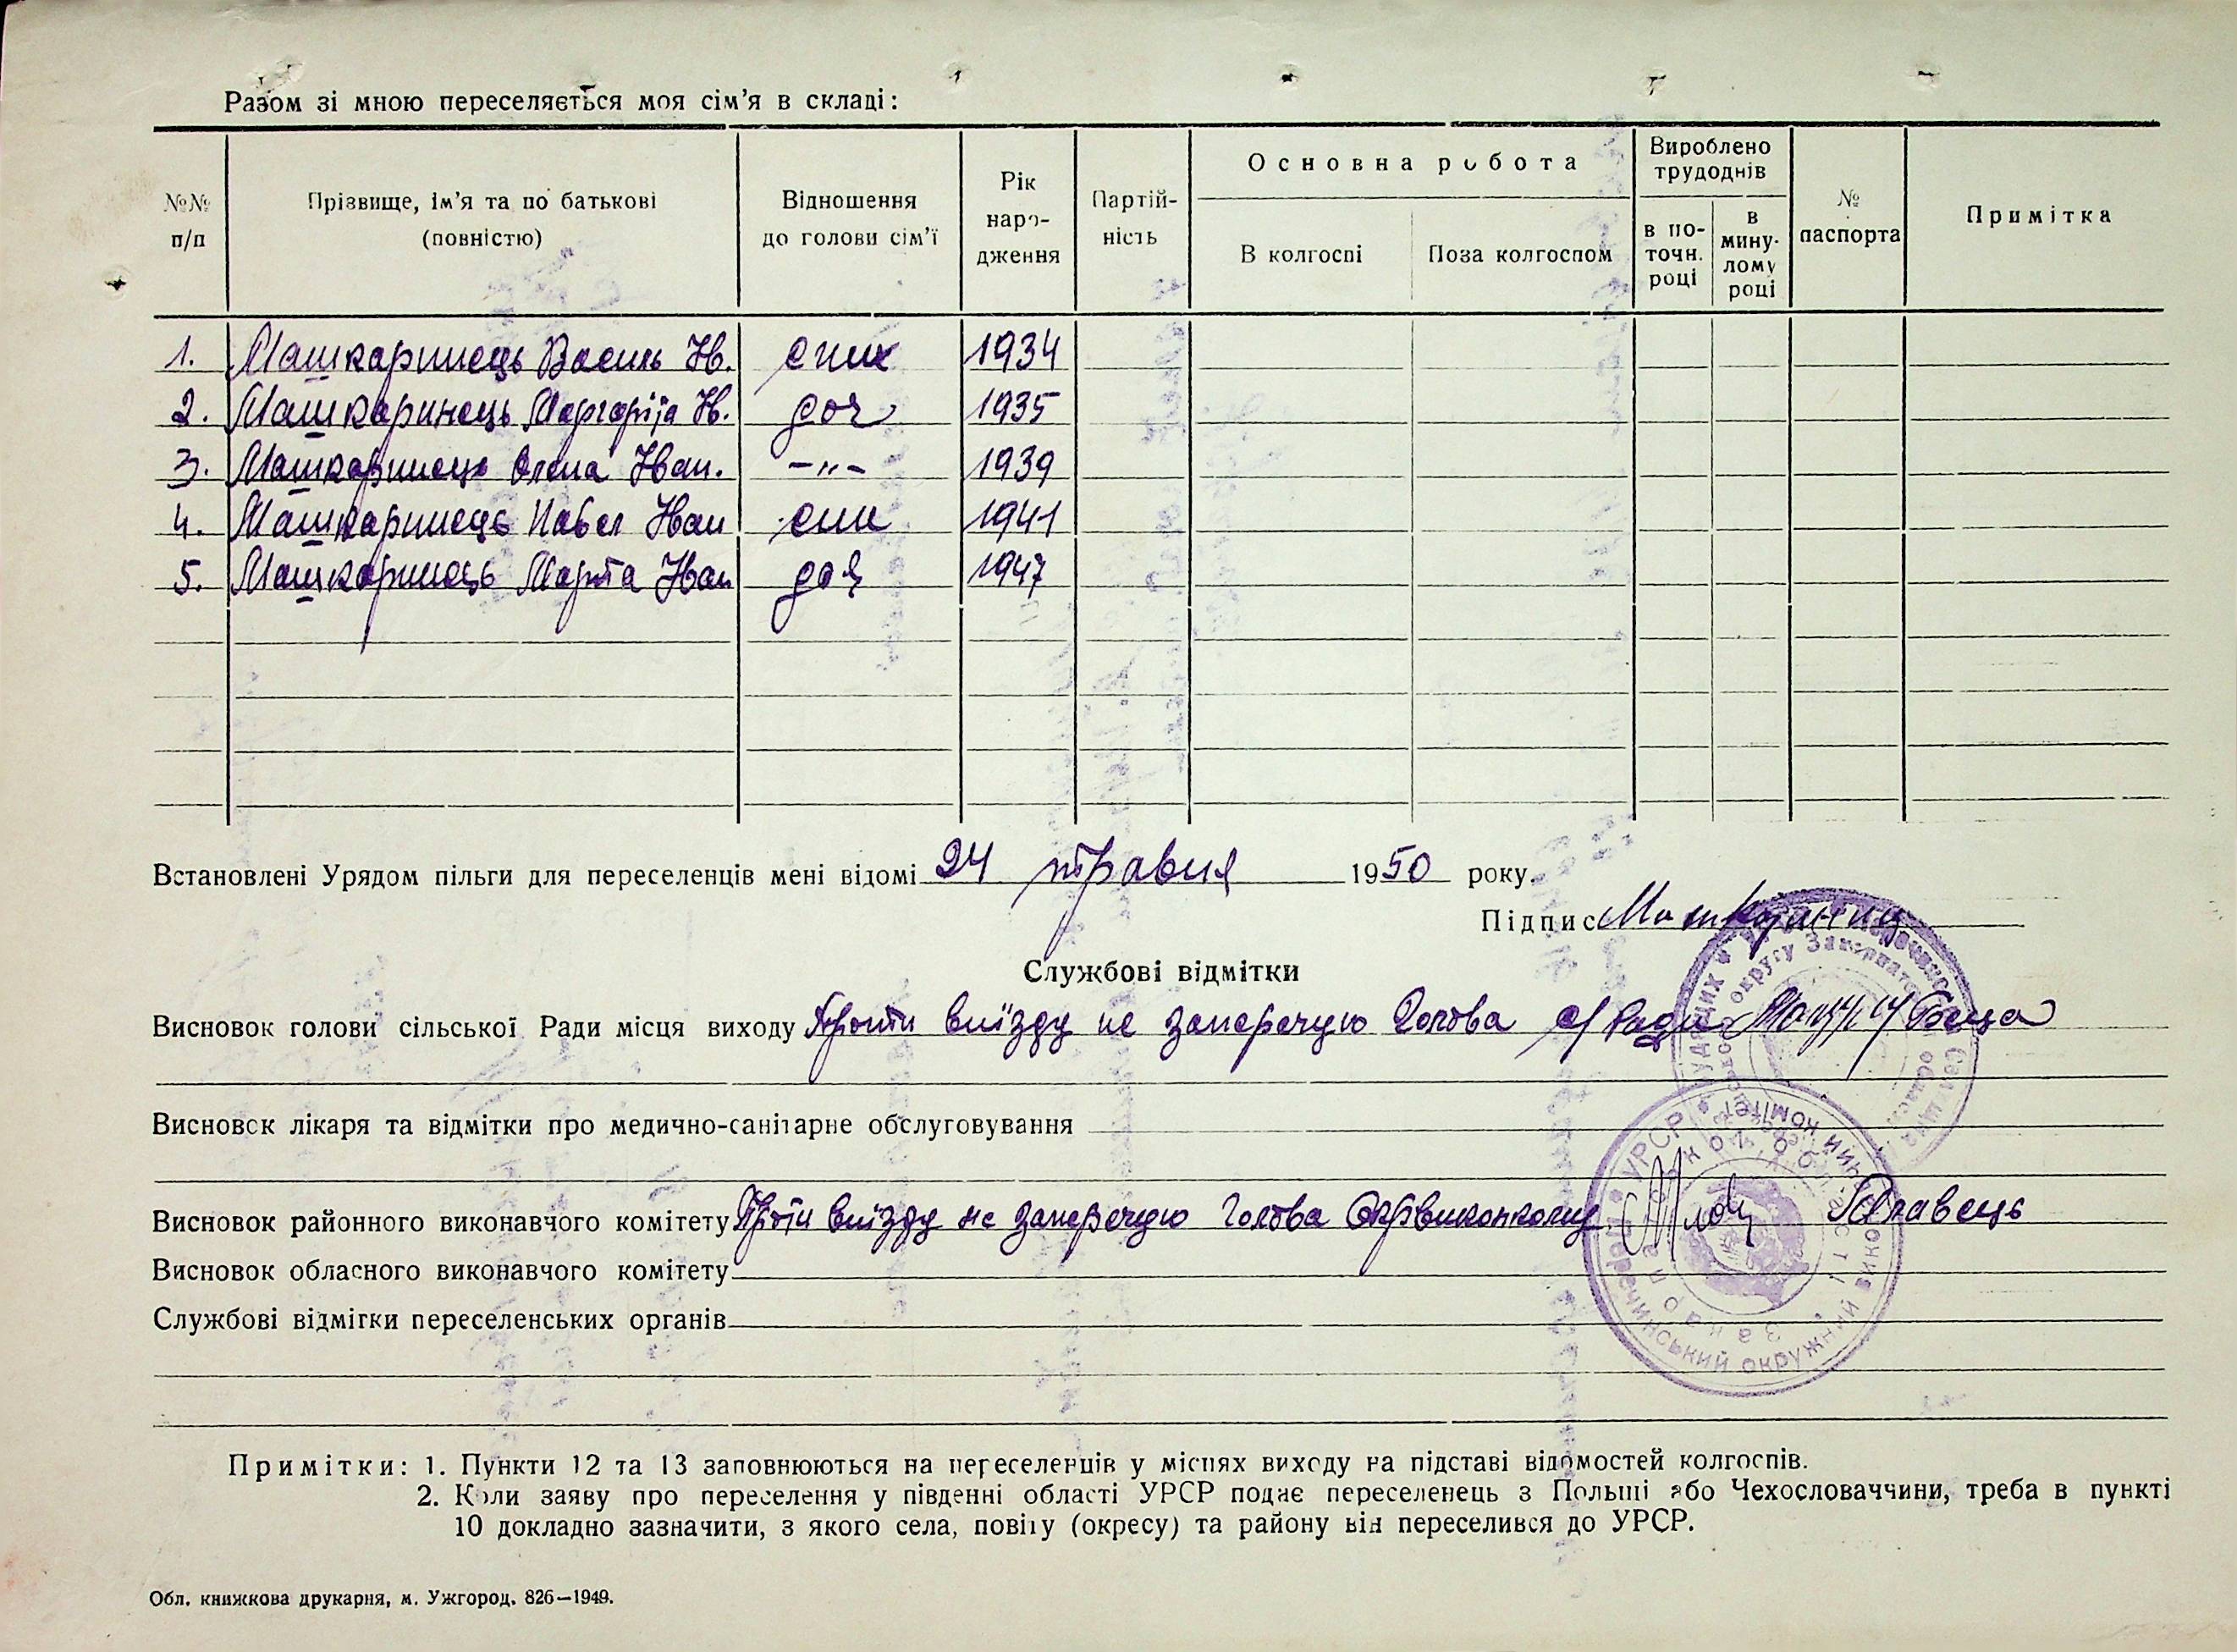 Разом зі мною переселяється моя сім'я в складі:
№№ п/п
Прізвище, ім'я та по батькові (повністю)
Відношення до голови сім'ї
Рік наро-дження
Партій-ність
Основна робота
В колгоспі
Поза колгоспом
Вироблено трудоднів
в по-точн. році
в мину-лому році
№ паспорта
Примітка
1. Машкаринець Василь Ів. син 1934
2. Машкаринець Маргаріта Ів. доч 1935
3. Машкаринець Олена Іван. -"- 1939
4. Машкаринець Павел Іван син 1941
5. Машкаринець Марта Іван доч 1947
Встановлені Урядом пільги для переселенців мені відомі 24 травня 1950 року.
Підпис Машкаринец
Службові відмітки
Висновок голови сільської Ради місця виходу Проти виїзду не заперечую Голова с/Ради
Висновок лікаря та відмітки про медично-санітарне обслуговування
Висновок районного виконавчого комітету Проти виїзду не заперечую Голова Окрвиконкому
Висновок обласного виконавчого комітету
Службові відмітки переселенських органів
УРСР
Перечинський окружний виконавчий комітет
Закарпатської області
Примітки: 1. Пункти 12 та 13 заповнюються на переселенців у місцях виходу на підставі відомостей колгоспів.
2. Коли заяву про переселення у південні області УРСР подає переселенець з Польщі або Чехословаччини, треба в пункті
10 докладно зазначити, з якого села, повіту (окресу) та району він переселився до УРСР.
Обл. книжкова друкарня, м. Ужгород. 826—1949.